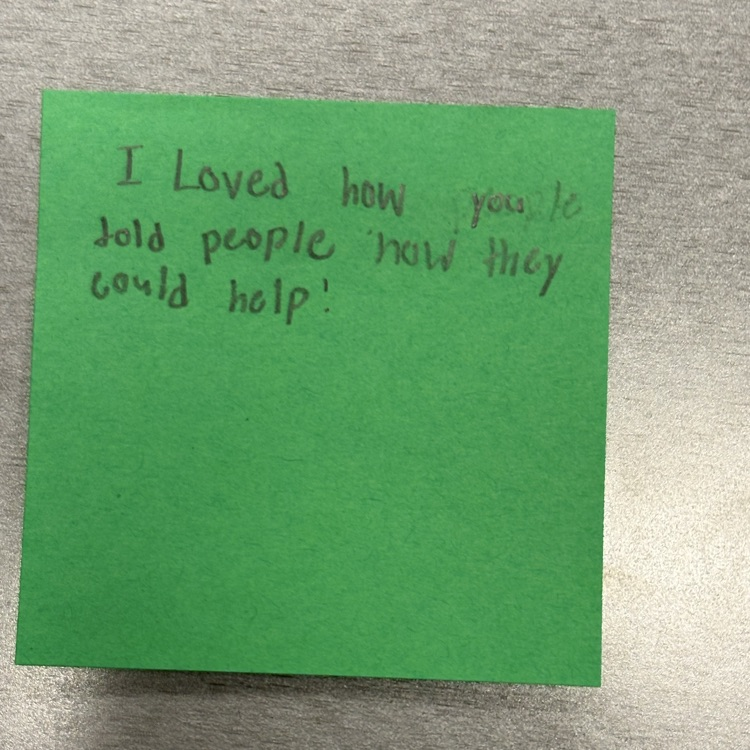 I Loved how you
told people how they
could help!